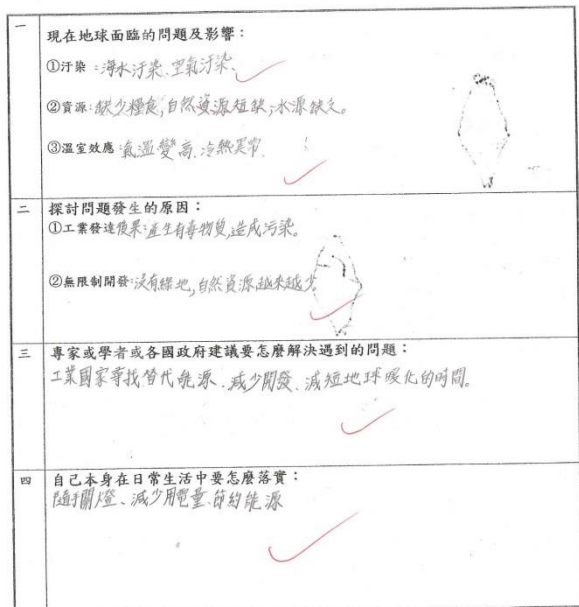 一
現在地球面臨的問題及影響：
①汙染：海水汙染、空氣汙染、
②資源：缺少糧食,自然資源短缺,水源缺乏。
③溫室效應 氣溫變高、冷熱異常、
二
探討問題發生的原因：
①工業發達後果：產生有毒物質,造成污染。
②無限制開發：沒有綠地,自然資源越來越少。
三
專家或學者或各國政府建議要怎麼解決遇到的問題：
工業國家尋找替代能源、減少開發、減短地球暖化的時間。
四
自己本身在日常生活中要怎麼落實：
隨手關燈、減少用電量、節約能源